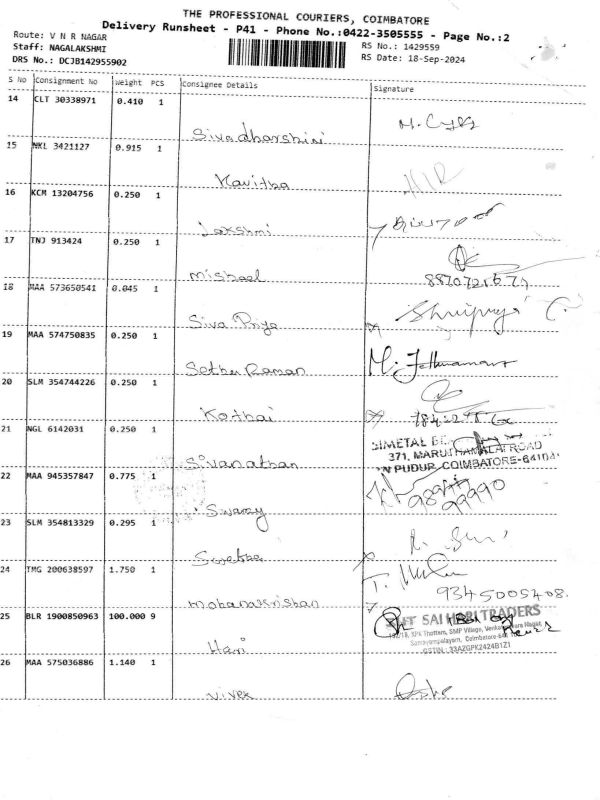 THE PROFESSIONAL COURIERS, COIMBATORE
Delivery Runsheet - P41 - Phone No.:0422-3505555 - Page No.:2
Route: V N R NAGAR
Staff: NAGALAKSHMI
DRS No.: DCJB142955902
RS No.: 1429559
RS Date: 18-Sep-2024
S No Consignment No Weight PCS Consignee Details Signature
14 CLT 30338971 0.410 1
Sivadharshini
15 NKL 3421127 0.915 1
Kavitha
16 KCM 13204756 0.250 1
Lakshmi
17 TNJ 913424 0.250 1
Mishael
18 MAA 573650541 0.045 1
Siva Priya
19 MAA 574750835 0.250 1
Sethu Raman
20 SLM 354744226 0.250 1
Kothai
21 NGL 6142031 0.250 1
SIMETAL
371, MARUTHAMALAI ROAD
PUDUR, COIMBATORE-64104
Sivanathan
22 MAA 945357847 0.775 1
Swamy
23 SLM 354813329 0.295 1
Swetha
24 TMG 200638597 1.750 1
9345005408.
Mohanakrishnan
25 BLR 1900850963 100.000 9
SAI HARI TRADERS
XPK Thottam, SMP Village,
Somayampalayam, Coimbatore-641
GSTIN : 33AZGPK2424B1Z1
Hari
26 MAA 575036886 1.140 1
Vivek